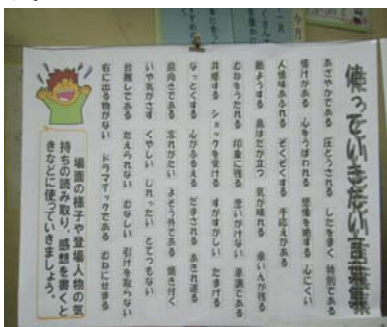 使っていきたい言葉集
あざやかである 圧とうされる したをまく 特別である
情けがある 心をうばわれる 想像を絶する 心にくい
人情味あふれる ぞくぞくする 手応えがある
勘ようする 鳥はだが立つ 気が晴れる 余いんが残る
むねをうたれる 印象に残る 思いがけない 単調である
共感する ショックを受ける すがすがしい たまげる
なっとくする 心がふるえる だまされる あきれ返る
前向きである 忘れがたい よそう外である 焼き付く
いや気がさす くやしい じれったい とてつもない
台無しである たえられない むなしい 引けを取らない
右に出る物がない ドラマチックである むねにせまる
場面の様子や登場人物の気
持ちの読み取り、感想を書くと
きなどに使っていきましょう。
今月